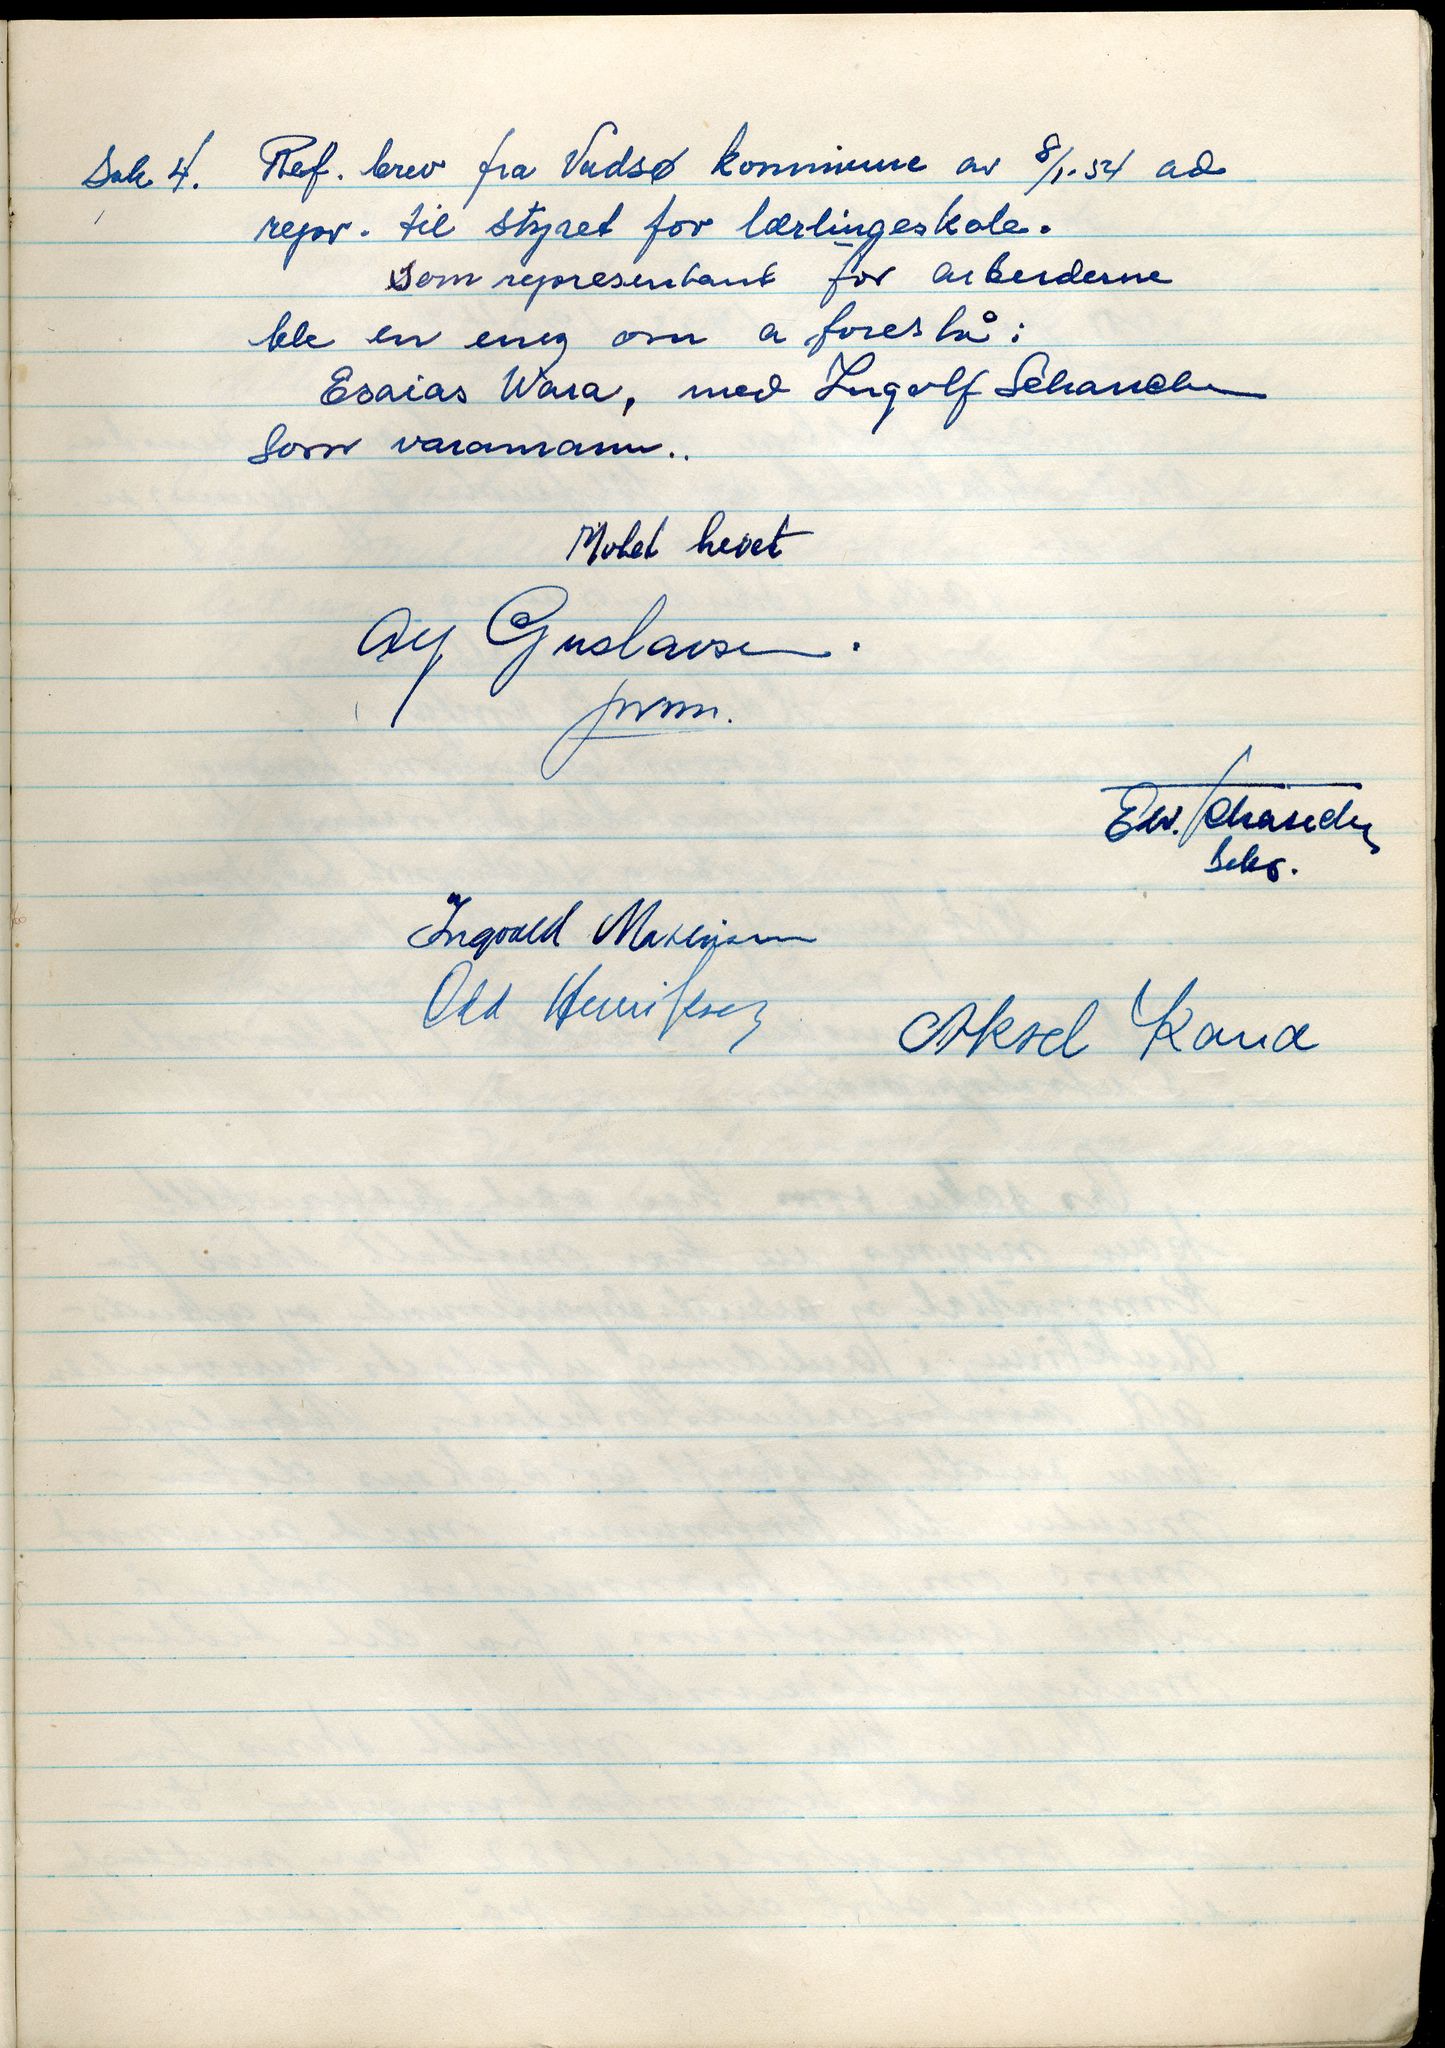 Sak 4. Ref. brev fra Vadsø kommune av 8/1-54 ad
repr. til styret for lærlingeskole.
Som representant for arbeiderne
ble en enig om å foreslå:
Esaias Wara, med Ingolf Schanche
som varamann..
Møtet hevet
Alf Gustavsen.
form.
Edv. Schanche
Sekr.
Ingvald Mathisen
Odd Henriksen
Aksel Kana